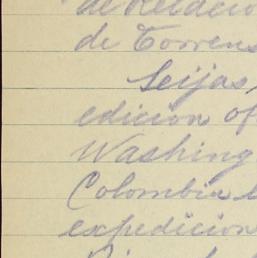 de Relacio
de Torrens
Seijas,
edicion of
Washing
Colombia e
expedicion